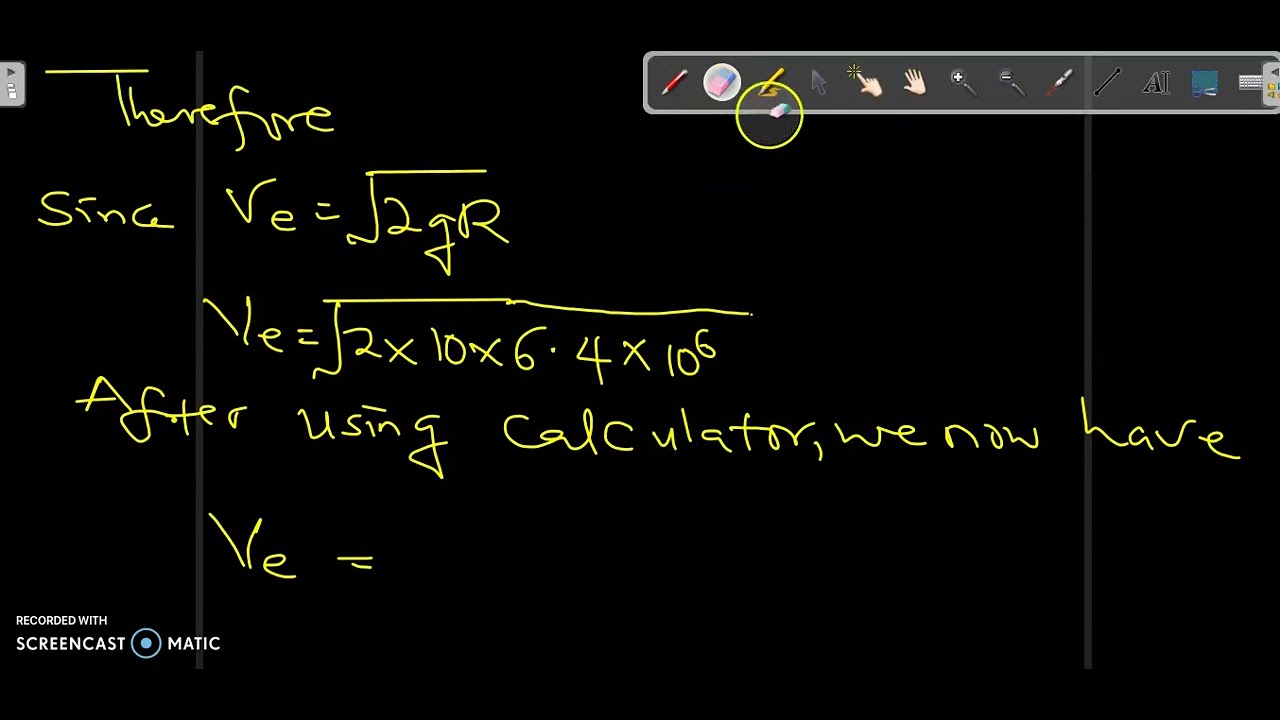 Therefore
Since Ve = √2gR
Ve = √2 × 10 × 6.4 × 10⁶
After using calculator, we now have
Ve =
RECORDED WITH
SCREENCAST MATIC
AI